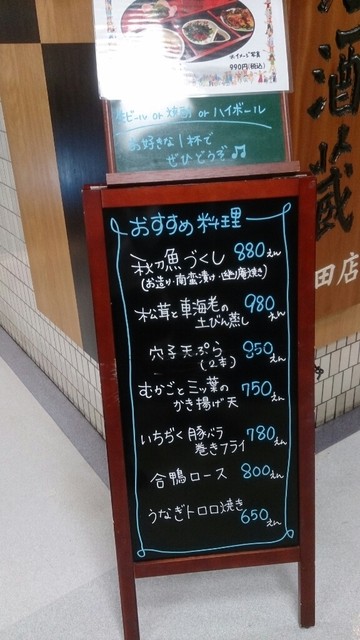 ※イメージ写真
990円(税込)
生ビール or 焼酎 or ハイボール
お好きな1杯で
ぜひどうぞ♫
酒
蔵
田店
おすすめ料理
秋刀魚づくし 880えん
(お造り・南蛮漬け・幽庵焼き)
松茸と車海老の 980えん
土びん蒸し
穴子天ぷら 950えん
(2本)
むかごと三ッ葉の 750えん
かき揚げ天
いちぢく豚バラ 780えん
巻きフライ
合鴨ロース 800えん
うなぎトロロ焼き 650えん